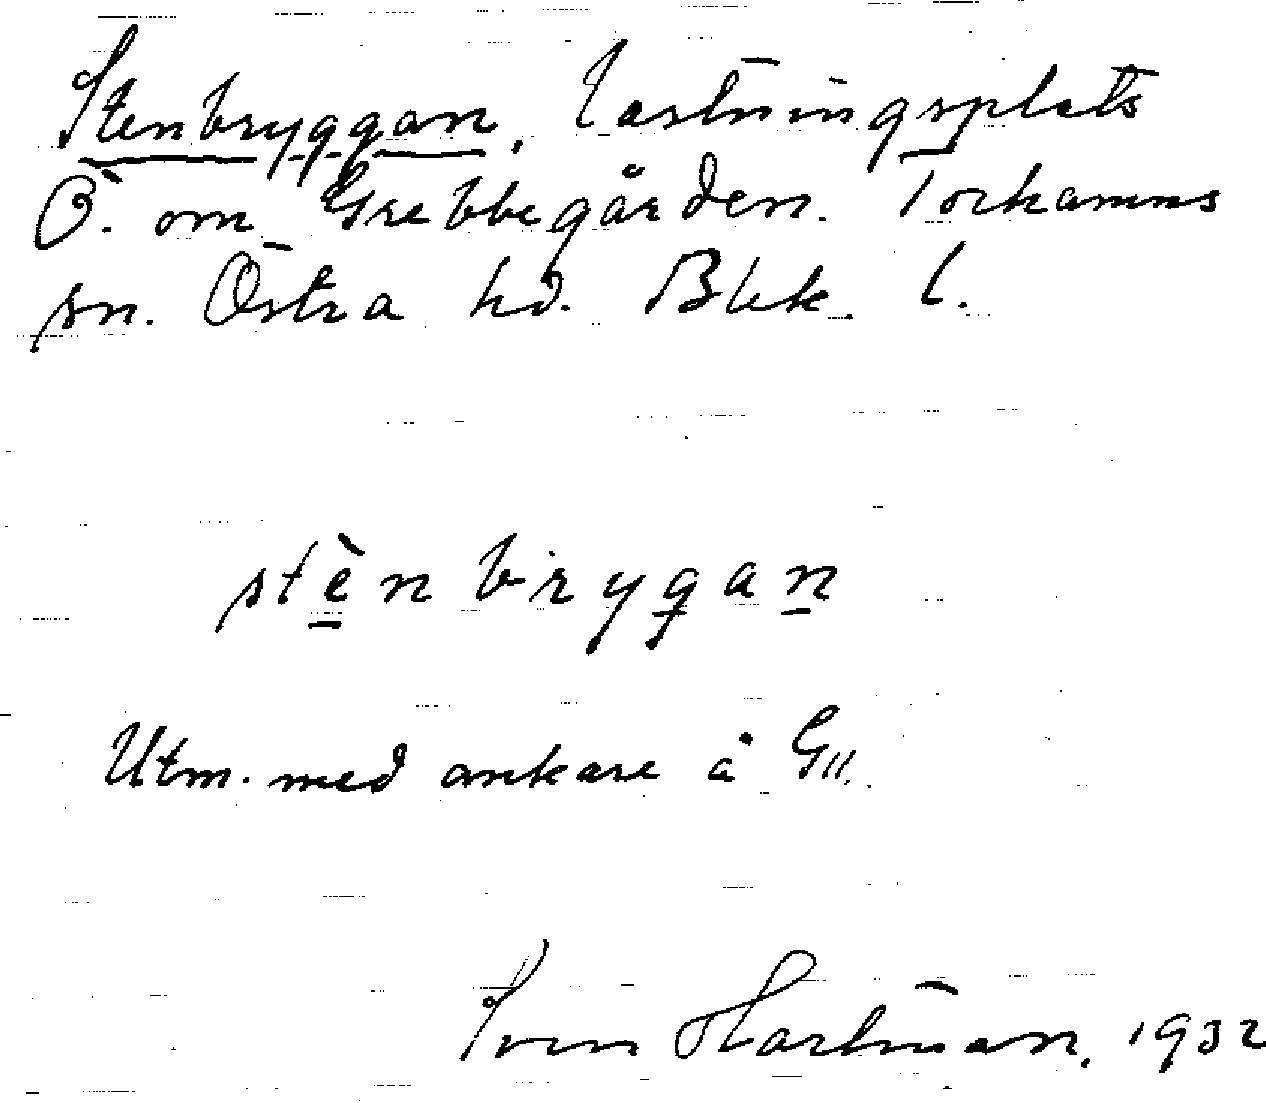 Stenbryggan, lastningsplats
Ö. om Grebbegården. Torhamns
sn. Östra hd. Blek. l.
stènbrygan
Utm. med ankare å G11.
Sven Hartman, 1932